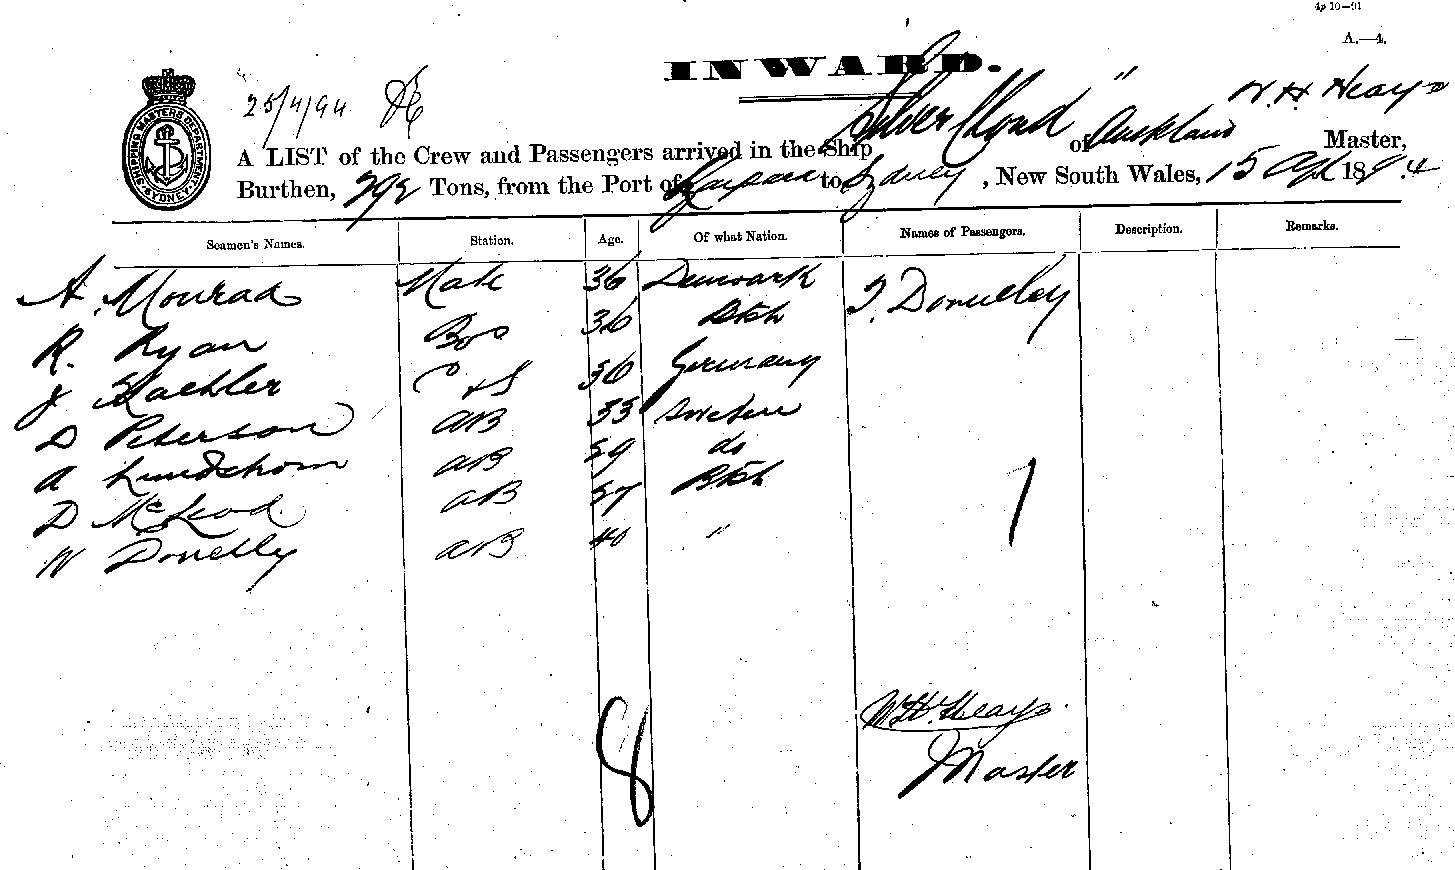 4p 10—91
A.—4.
INWARD.
25/4/94
SHIPPING MASTERS DEPARTMENT SYDNEY
A LIST of the Crew and Passengers arrived in the Ship "Silver Cloud" of Auckland W. H. Heays Master,
Burthen, 292 Tons, from the Port of to Sydney, New South Wales, 15 Apl 1894
Seamen's Names. Station. Age. Of what Nation. Names of Passengers. Description. Remarks.
A. Monrad Mate 36 Denmark T. Donelley
R. Ryan Bos 36 Btsh
J Kaehler C & S 36 Germany
D Peterson AB 33 Sweden
A Lundstrom AB 39 do
D McLeod AB 37 Btsh
W Donelly AB 40 "
1
8
W. H. Heays
Master